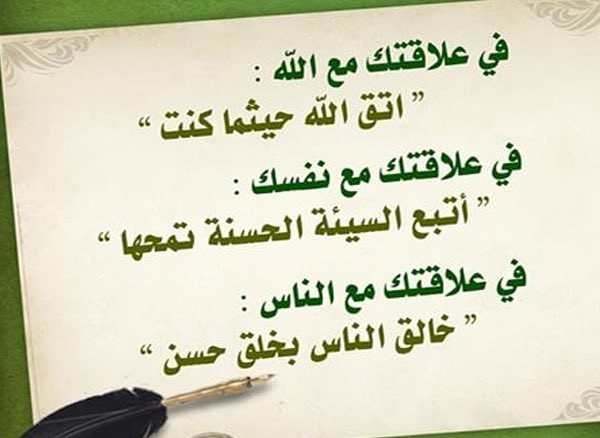 في علاقتك مع الله :
” اتق الله حيثما كنت “
في علاقتك مع نفسك :
” أتبع السيئة الحسنة تمحها “
في علاقتك مع الناس :
” خالق الناس بخلق حسن “